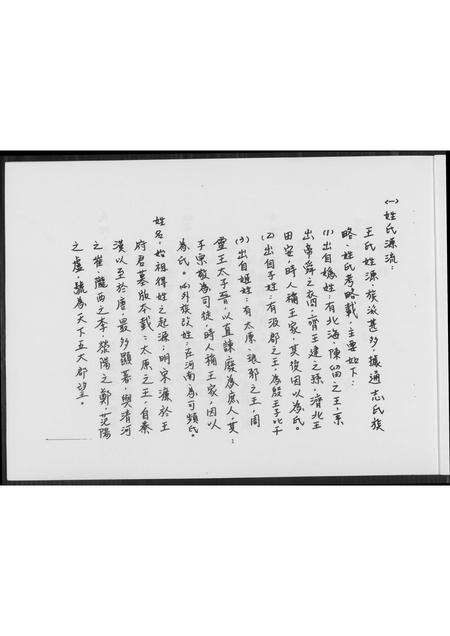 (一)姓氏源流:
王氏姓源,族派甚多,據通志氏族
略、姓氏考略載,主要如下:
(1)出自媯姓:有北海、陳留之王,系
出帝舜之裔,齊王建之孫,濟北王
田安,時人稱王家,其後因以為氏。
(2)出自子姓:有汲郡之王,為殷王子比干
(3)出自姬姓:有太原、琅邪之王,周
靈王太子晉,以直諫廢為庶人,其
子宗敬為司徒,時人稱王家,因以
為氏。(4)外族改姓:在河南為可頻氏。
姓名,始祖得姓之起源:明宋濂於王
府君墓版本載:太原之王,自秦
漢以至於唐,最多顯著,與清河
之崔、隴西之李、滎陽之鄭、范陽
之盧,號為天下五大郡望。